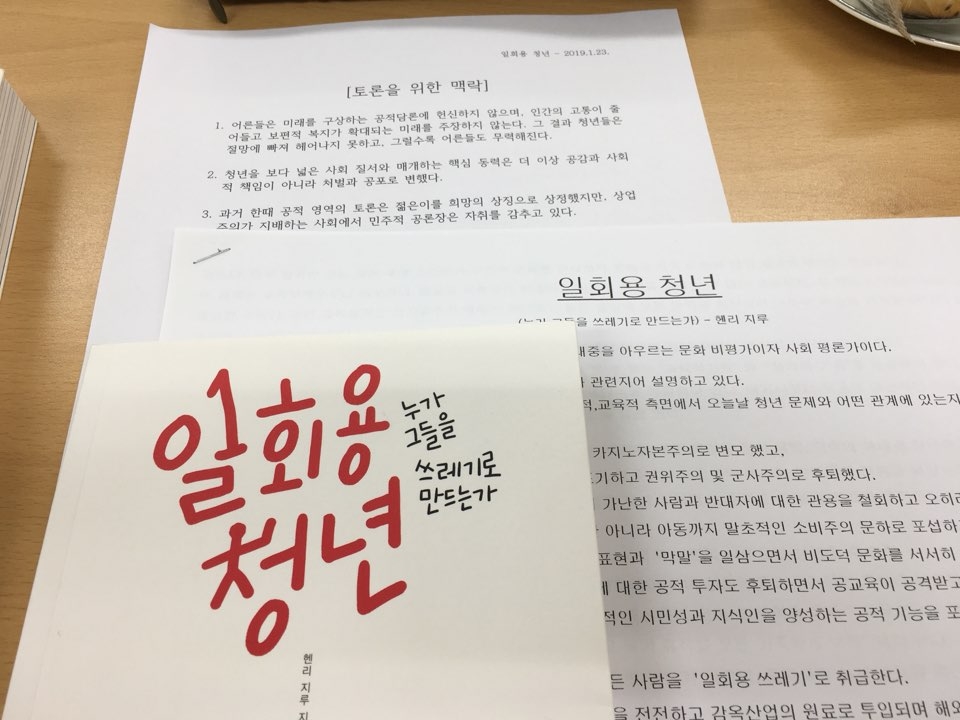 일회용 청년 - 2019.1.23.
[토론을 위한 맥락]
1. 어른들은 미래를 구상하는 공적담론에 헌신하지 않으며, 인간의 고통이 줄
어들고 보편적 복지가 확대되는 미래를 주장하지 않는다. 그 결과 청년들은
절망에 빠져 헤어나지 못하고, 그럴수록 어른들도 무력해진다.
2. 청년을 보다 넓은 사회 질서와 매개하는 핵심 동력은 더 이상 공감과 사회
적 책임이 아니라 처벌과 공포로 변했다.
3. 과거 한때 공적 영역의 토론은 젊은이를 희망의 상징으로 상정했지만, 상업
주의가 지배하는 사회에서 민주적 공론장은 자취를 감추고 있다.
일회용 청년
쓰레기로 만드는가) - 헨리 지루
대중을 아우르는 문화 비평가이자 사회 평론가이다.
관련지어 설명하고 있다.
적,교육적 측면에서 오늘날 청년 문제와 어떤 관계에 있는지
카지노자본주의로 변모 했고,
기하고 권위주의 및 군사주의로 후퇴했다.
가난한 사람과 반대자에 대한 관용을 철회하고 오히려
아니라 아동까지 말초적인 소비주의 문하로 포섭하
표현과 '막말'을 일삼으면서 비도덕 문화를 서서히
대한 공적 투자도 후퇴하면서 공교육이 공격받고
적인 시민성과 지식인을 양성하는 공적 기능을 포
든 사람을 '일회용 쓰레기'로 취급한다.
을 전전하고 감옥산업의 원료로 투입되며 해외
일회용
청년
누가
그들을
쓰레기로
만드는가
헨리 지루 지